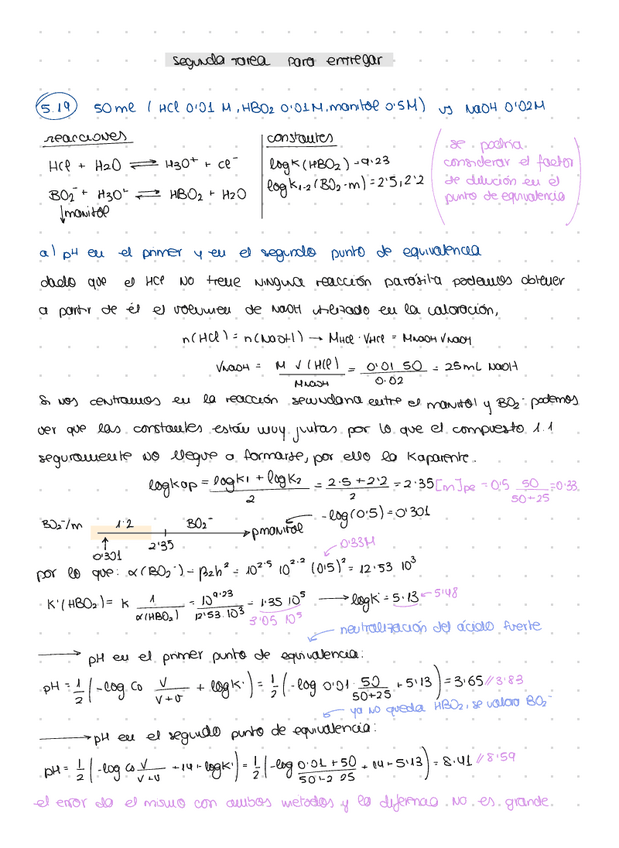 segunda tarea para entregar
5.19 50ml (HCl 0'01 M, HBO2 0'01M, manitol 0'5M) vs NaOH 0'02M
reacciones
HCl + H2O ⇌ H3O+ + Cl-
BO2- + H3O+ ⇌ HBO2 + H2O
↓manitol
constantes
logK(HBO2) = 9'23
logK1,2(BO2-m) = 2'5, 2'2
(se podría
considerar el factor
de dilución en el
punto de equivalencia)
a) pH en el primer y en el segundo punto de equivalencia
dado que el HCl no tiene ninguna reacción parásita podemos obtener
a partir de él el volumen de NaOH utilizado en la valoración,
n(HCl) = n(NaOH) → MHCl · VHCl = MNaOH VNaOH
VNaOH = M V (HCl) / MNaOH = 0'01 50 / 0'02 = 25mL NaOH
Si nos centramos en la reacción secundaria entre el manitol y BO2- podemos
ver que las constantes están muy juntas por lo que el compuesto 1.1
seguramente no llegue a formarse, por ello la Kaparente.
logKap = logK1 + logK2 / 2 = 2'5 + 2'2 / 2 = 2'35 [m]pe = 0'5 50 / 50+25 = 0'33
BO2-/m 1:2 BO2- → pmanitol -log(0'5) = 0'301
0'301 2'35 0'33M
por lo que: α(BO2-) = β2h² = 10^2'5 10^2'2 (0'5)² = 12'53 10³
K'(HBO2) = K 1 / α(HBO2) = 10^9'23 / 12'53 10³ = 1'35 10⁵ → logK = 5'13 5'48
3'05 10⁵
neutralización del ácido fuerte
→ pH en el primer punto de equivalencia:
pH = 1/2 (-log Co V / V+v + logK') = 1/2 (-log 0'01 50 / 50+25 + 5'13) = 3'65 // 3'83
ya no queda HBO2, se valora BO2-
→ pH en el segundo punto de equivalencia:
pH = 1/2 (-log Co V / V+v + 14 + logK') = 1/2 (-log 0'01 + 50 / 50+2·25 + 14 + 5'13) = 8'41 // 8'59
el error da el mismo con ambos metodos y la no es grande.